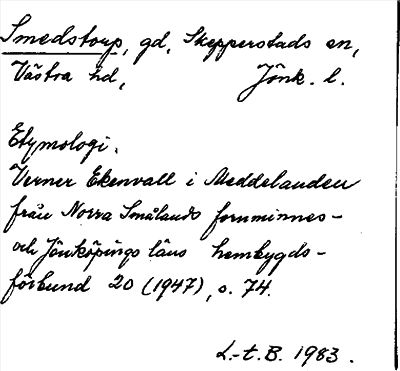 Smedstorp, gd, Skepperstads sn,
Västra hd, Jönk. l.
Etymologi.
Verner Ekenvall i Meddelanden
från Norra Smålands fornminnes-
och Jönköpings läns hembygds-
förbund 20 (1947), s. 74.
L.-t. B. 1983.